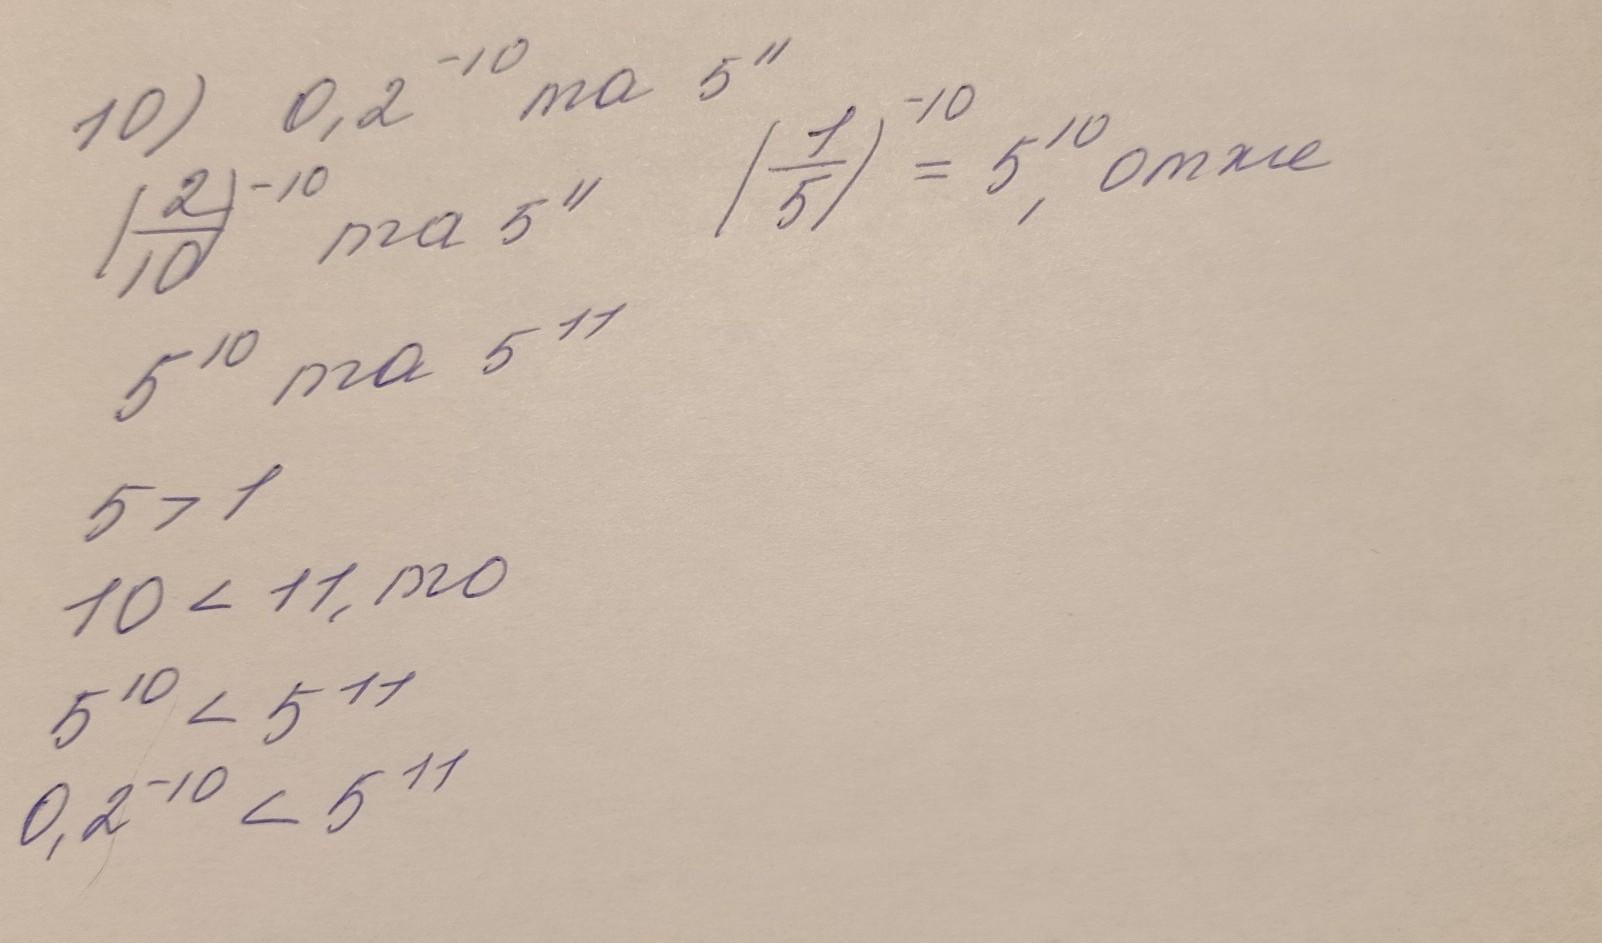 10) 0,2^{-10} та 5^{11}
(2/10)^{-10} та 5^{11} (1/5)^{-10} = 5^{10}, отже
5^{10} та 5^{11}
5 > 1
10 < 11, то
5^{10} < 5^{11}
0,2^{-10} < 5^{11}